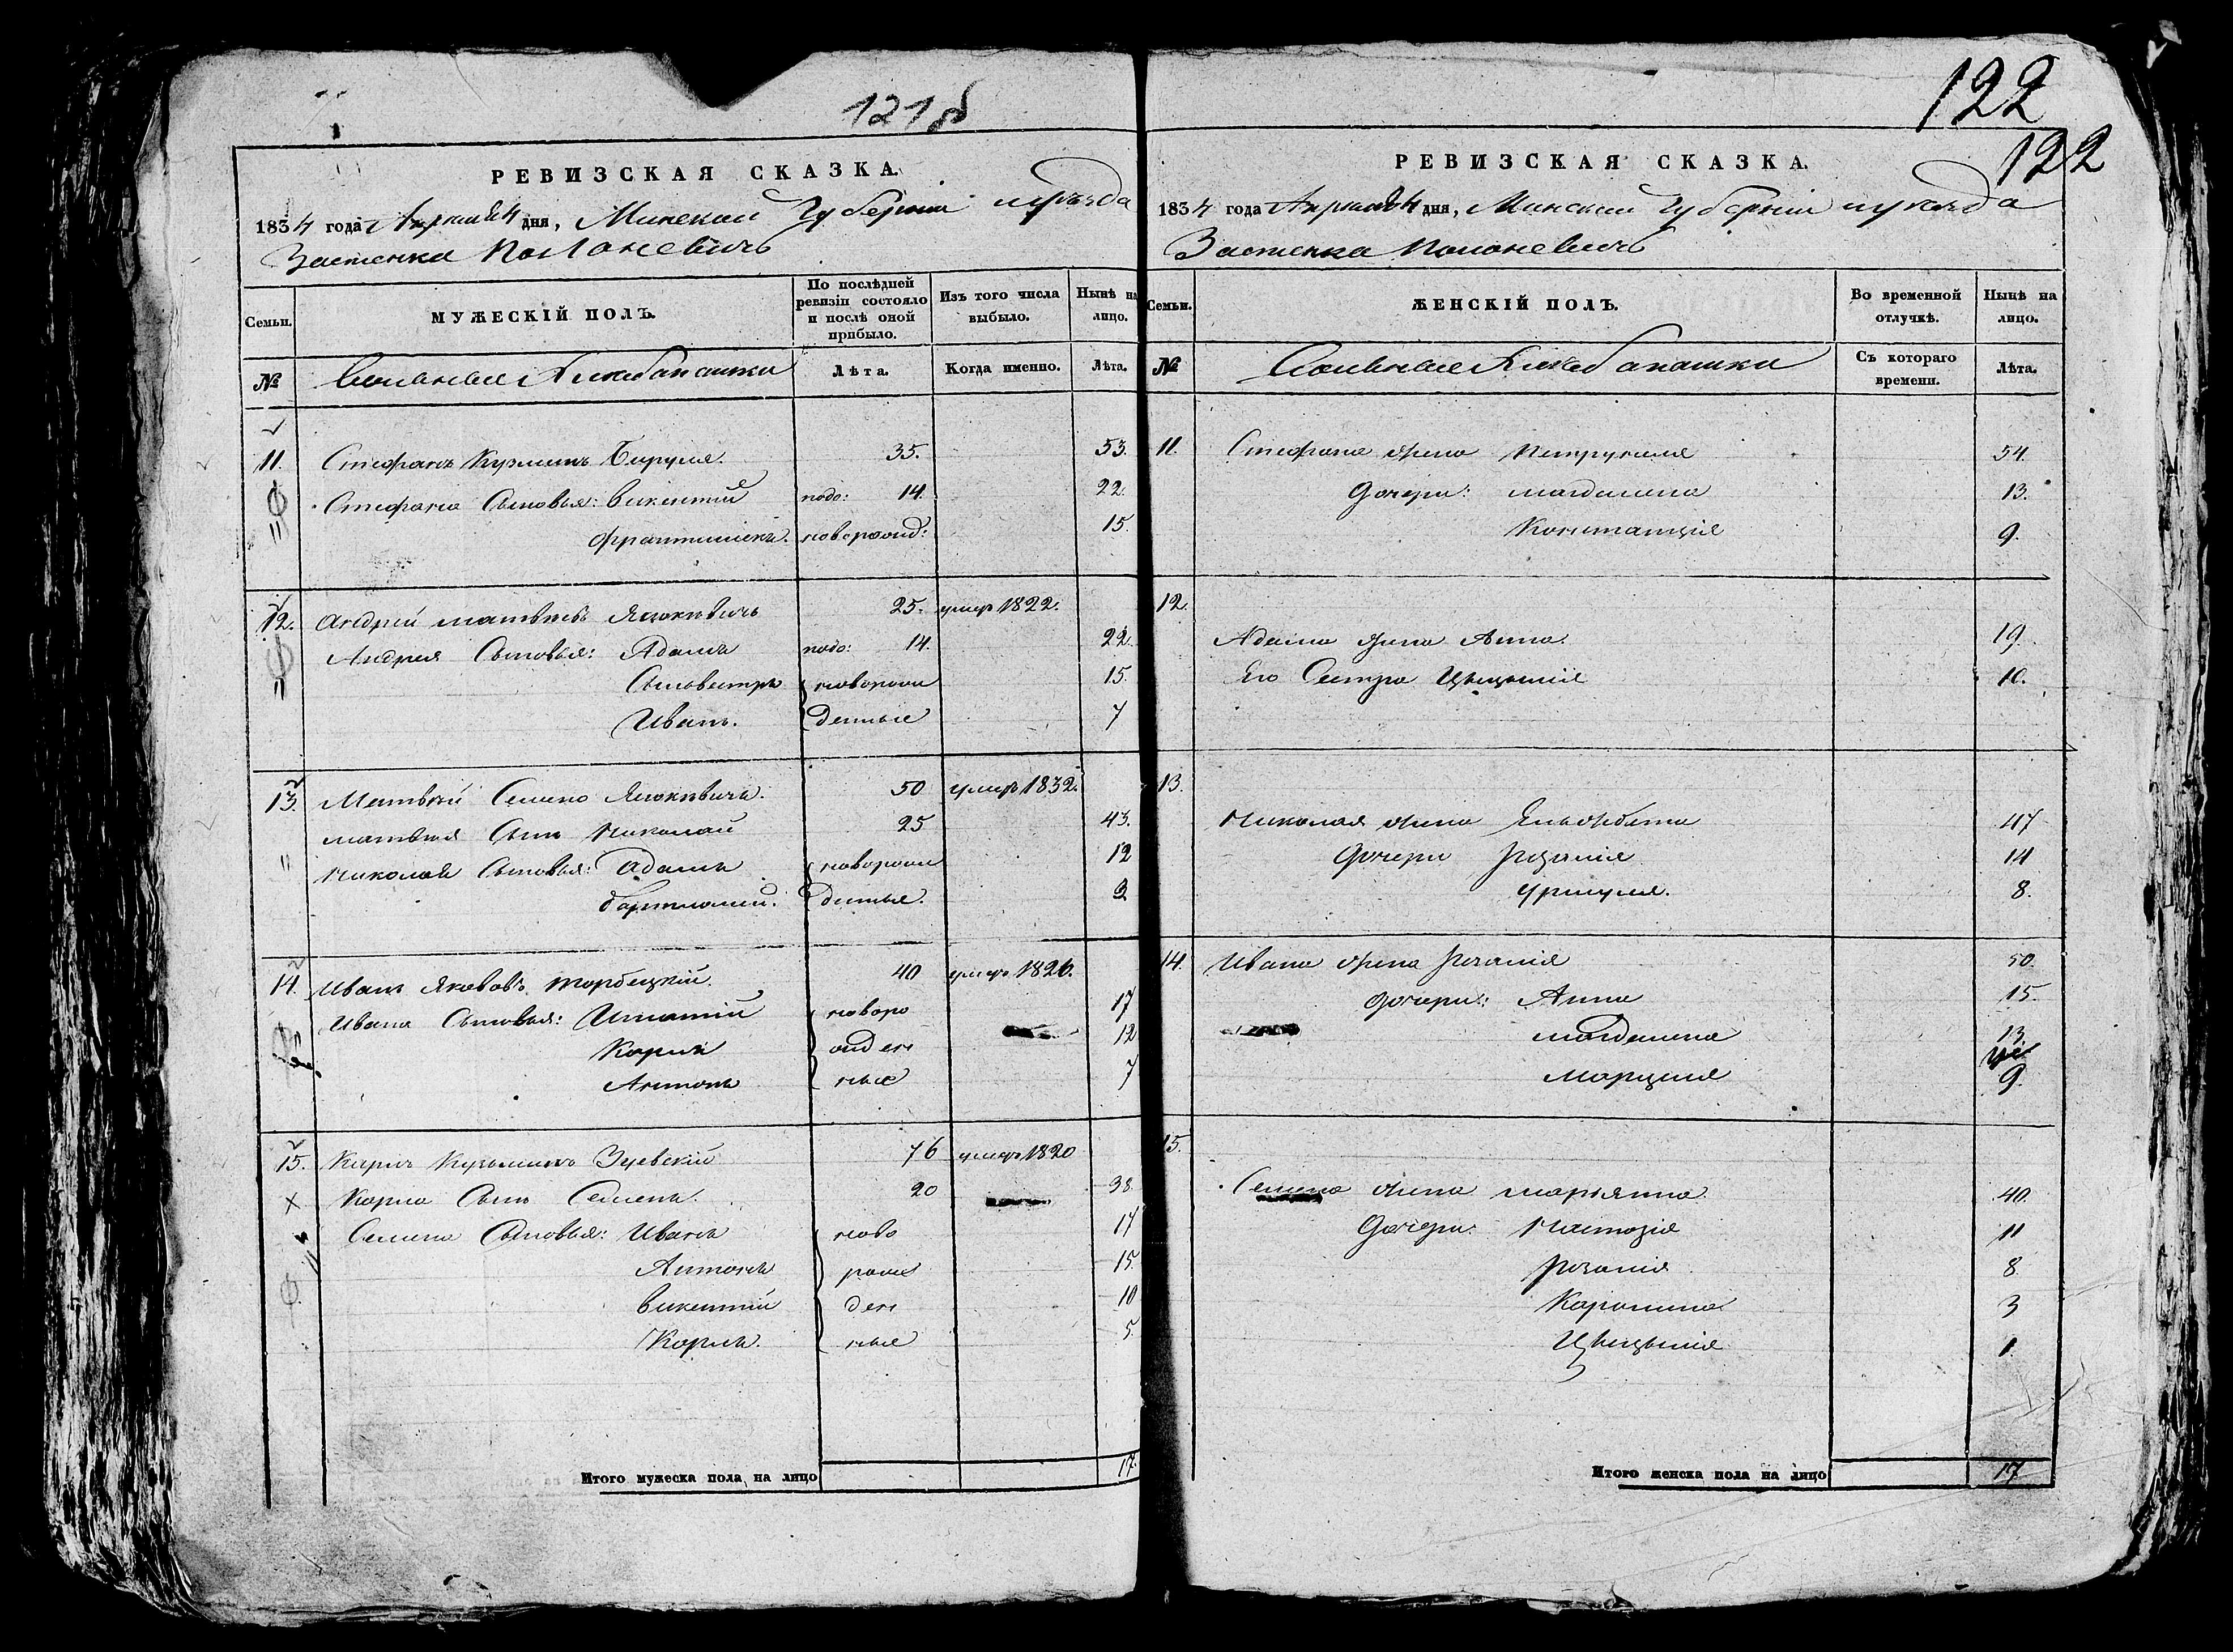 121 об
РЕВИЗСКАЯ СКАЗКА.
1834 года Апреля 24 дня, Минской Губернии и уѣзда
Застенка Полоневичь
Семьи. МУЖЕСКІЙ ПОЛЪ. По послѣдней ревизіи состояло и послѣ оной прибыло. Изъ того числа выбыло. Нынѣ на лицо.
№ Вольные Лѣта. Когда именно. Лѣта.
11. Стефанъ Кузминъ Бируля. 35. 53.
Стефана Сыновья: Викентій подо: 14. 22.
Францишекъ. новорожд: 15.
12. Андрей Матвѣевъ Яцкевичь 25. умеръ 1822.
Андрея Сыновья: Адамъ подо: 14. 22.
Сильвестръ новорож 15.
Иванъ. денные 7
13. Матвѣй Семено Яцкевичь. 50 умеръ 1832.
Матвѣя Сынъ Николай 25 43.
Николая Сыновья: Адамъ новорож 12
Бартломей. денные. 3
14. Иванъ Яковлевъ Торбецкій. 40 умеръ 1826.
Ивана Сыновья: Игнатій новоро 17
Карлъ жден 12
Антонъ ные 7
15. Карлъ Кузьминъ Зуевскій 76 умеръ 1820
Карла Сынъ Семенъ. 20 38.
Семена Сыновья: Иванъ ново 17
Антонъ рож 15
Викентій ден 10
Карлъ. ные 5.
Итого мужеска пола на лицо 17.
122
122
РЕВИЗСКАЯ СКАЗКА.
1834 года Апреля 24 дня, Минской Губерніи и уѣзда
Застенка Полоневичь
Семьи. ЖЕНСКІЙ ПОЛЪ. Во временной отлучкѣ. Нынѣ на лицо.
№ Вольные Съ котораго времени. Лѣта.
11. Стефана жена Петрунеля 54.
Дочери: Магдалена 13.
Констанція 9.
12.
Адама жена Анна. 19.
Его Сестра Цецилія 10.
13.
Николая жена Ельжбета 47
Дочери Розалія 14
Уршуля. 8.
14. Ивана жена Розалія 50.
Дочери: Анна 15.
Магдалена 13.
Марцеля 9.
15.
Семена жена Маріянна 40.
Дочери: Настазія 11
Розалія 8.
Каролина 3
Цецилія 1.
Итого женска пола на лицо 17